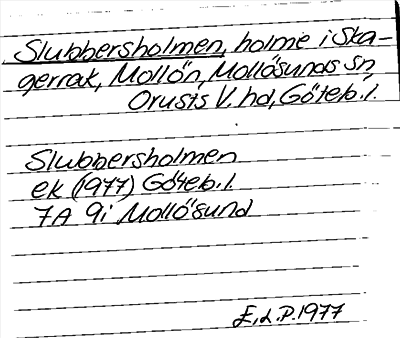 Slubbersholmen, holme i Ska-
gerrak, Mollön, Mollösunds sn,
Orusts V. hd, Göteb. l.
Slubbersholmen
ek (1977) Göteb. l.
7A 9i Mollösund
E.L.P. 1977